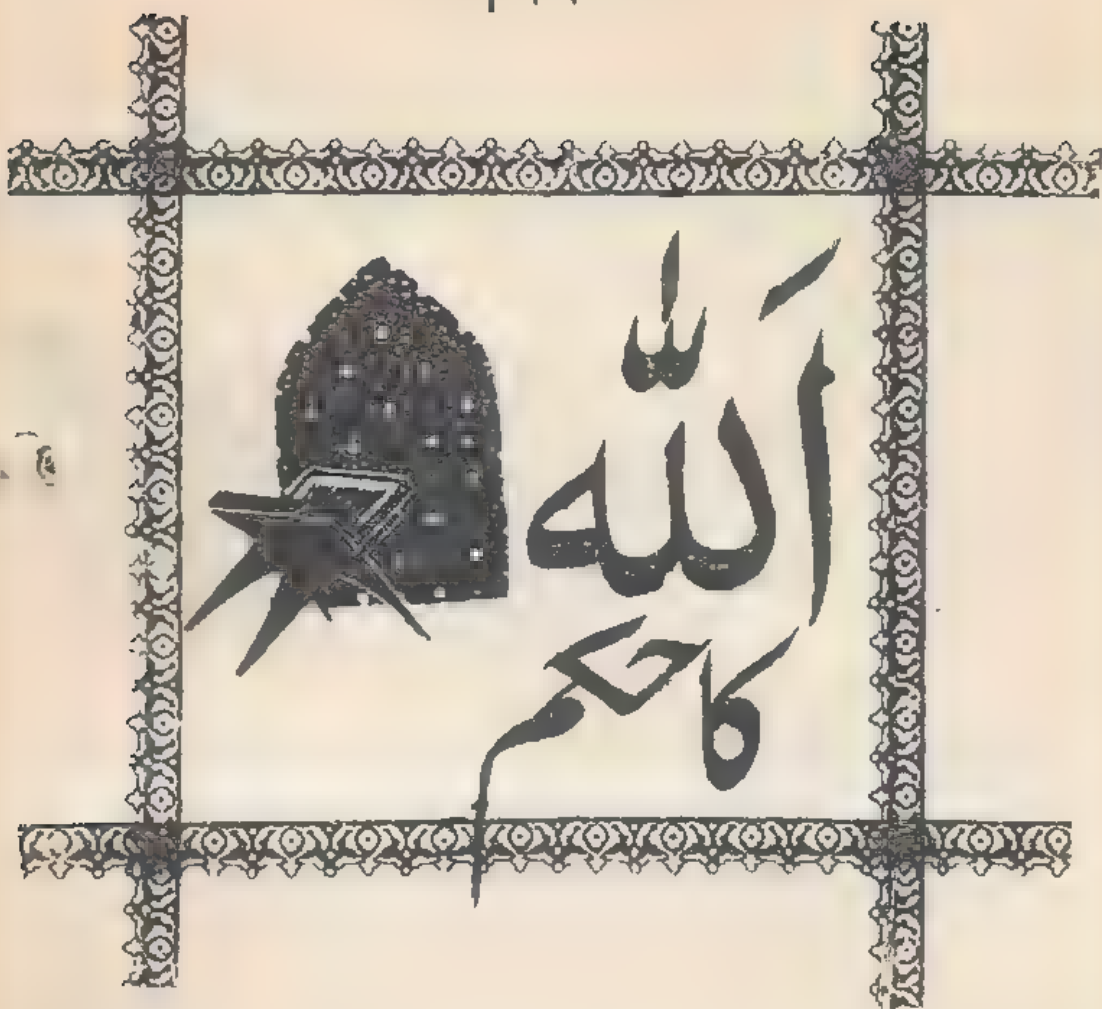 اَللّٰه
کا حکم